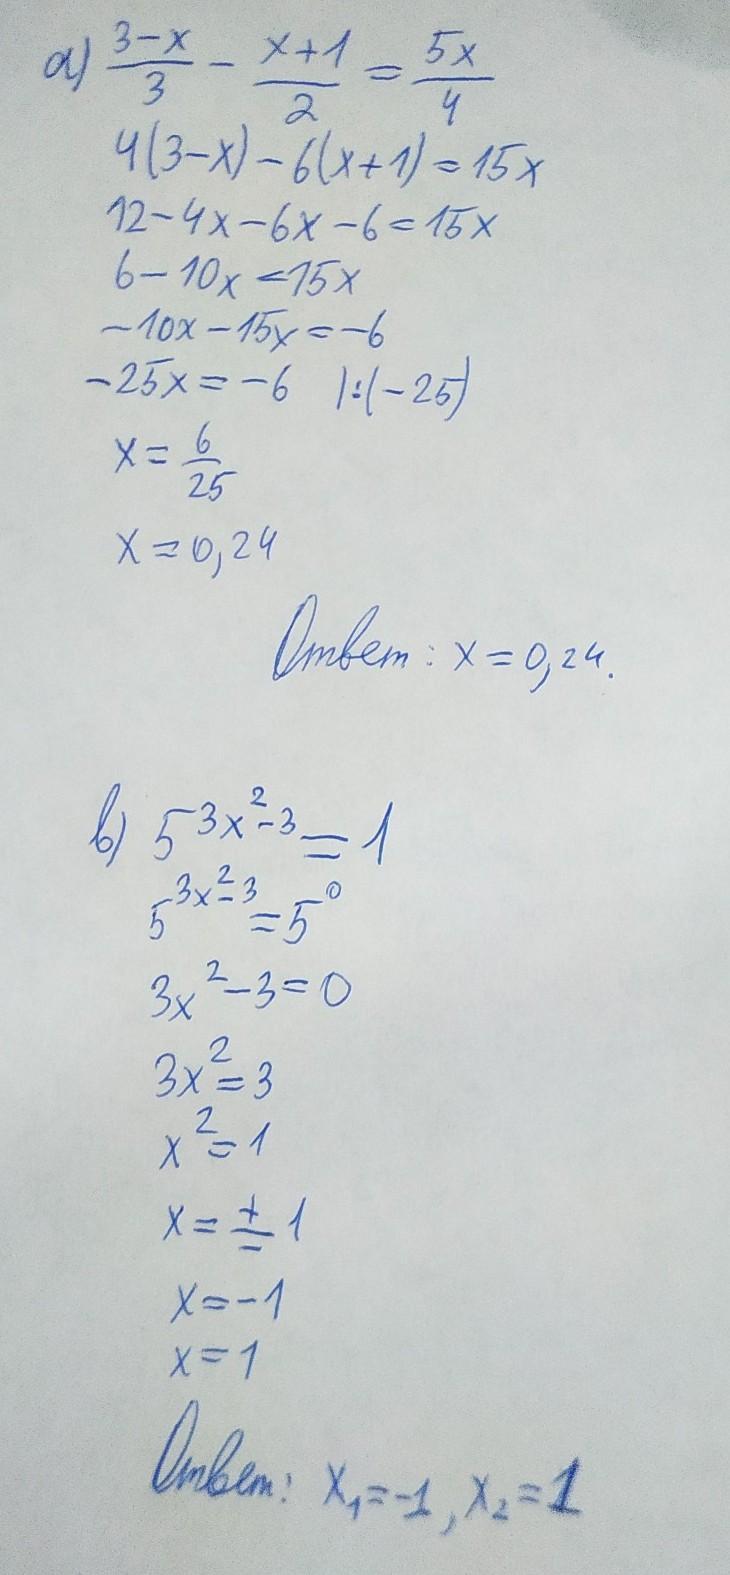 а) (3-x)/3 - (x+1)/2 = 5x/4
4(3-x)-6(x+1)=15x
12-4x-6x-6=15x
6-10x=15x
-10x-15x=-6
-25x=-6 |:(-25)
x=6/25
x=0,24
Ответ: x=0,24.
в) 5^(3x²-3)=1
5^(3x²-3)=5⁰
3x²-3=0
3x²=3
x²=1
x=±1
x=-1
x=1
Ответ: x₁=-1, x₂=1